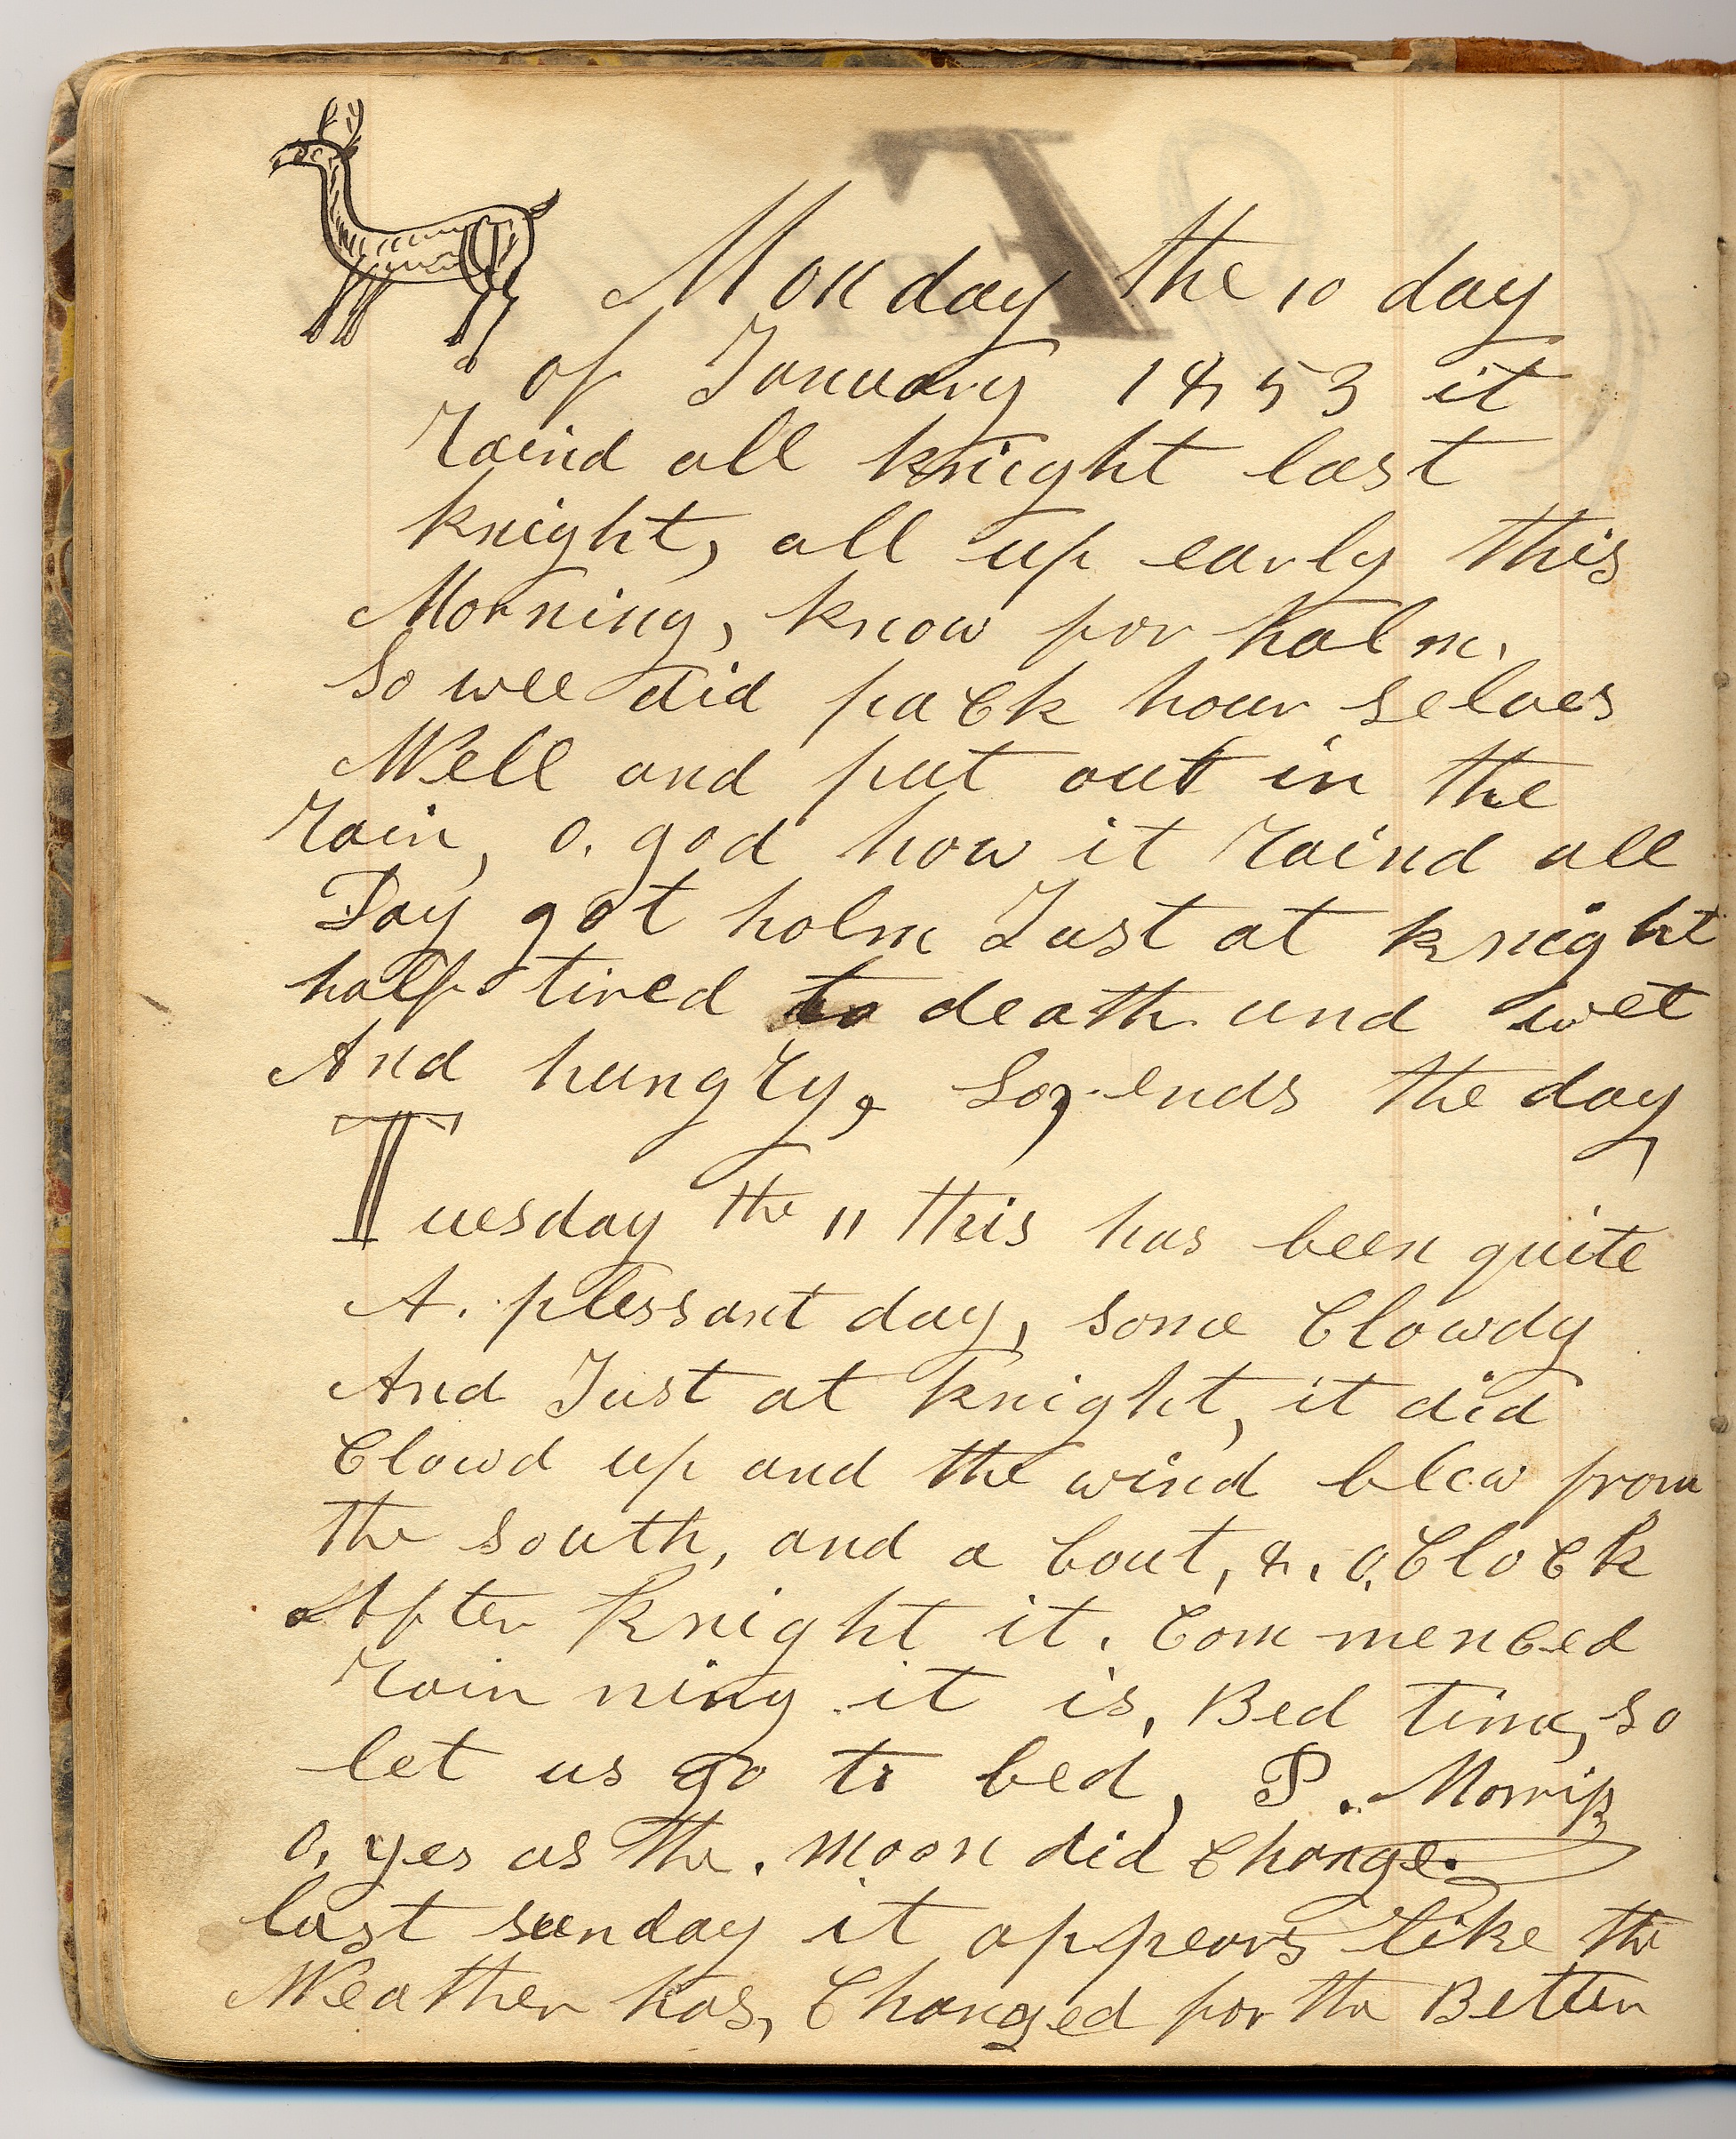 Monday the 10 day
of January 1853 it
raind all knight last
knight, all up early this
Morning, know for holm.
So wee did pack hour selves
Well and put out in the
rain, o. god how it raind all
Day got holm Just at knight
half tired to death and wet
And hungry, So, ends the day
Tuesday the 11 this has been quite
A. plessant day, some Clowdy
And Just at knight, it did
Clowd up and the wind blew from
the south, and a bout, 8. o, Clock
After knight it. Commenced
rain ning it is, Bed time, so
let us go to bed, P. Morriss
o. yes as the. moon did change.
last sunday it appears like the
Weather has, Changed for the Better